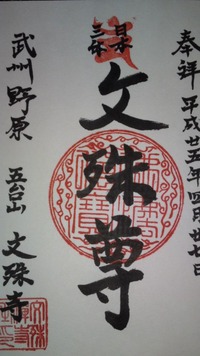 奉拝 平成廿五年四月廿七日
日本
三体
文殊尊
武州野原 五台山 文殊寺